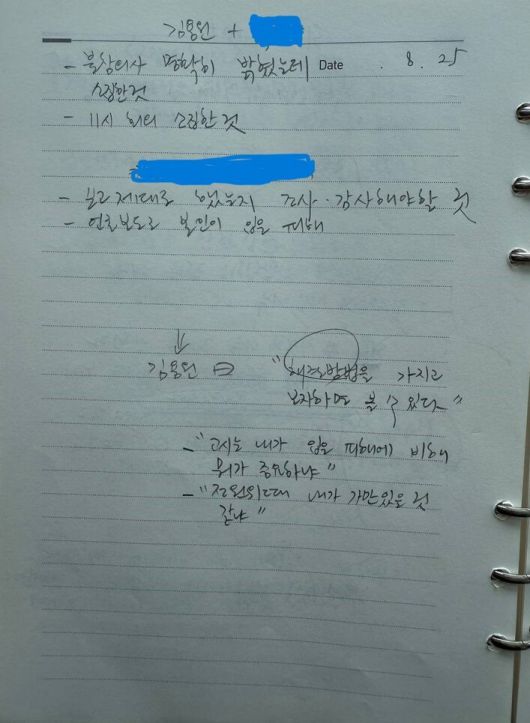 김용원 +
- 불참의사 명확히 밝혔는데 Date . 8. 25
소집한것
- 11시 회의 소집한 것
- 보고 제대로 했는지 조사·감사해야할 것
- 언론보도로 본인이 입은 피해
↓
김용원 曰 "방법을 가지고
보자하면 볼 수 있다"
- "고시는 내가 입은 피해에 비해
뭐가 중요하냐"
- "전원위 때 내가 가만있을 것
같냐"